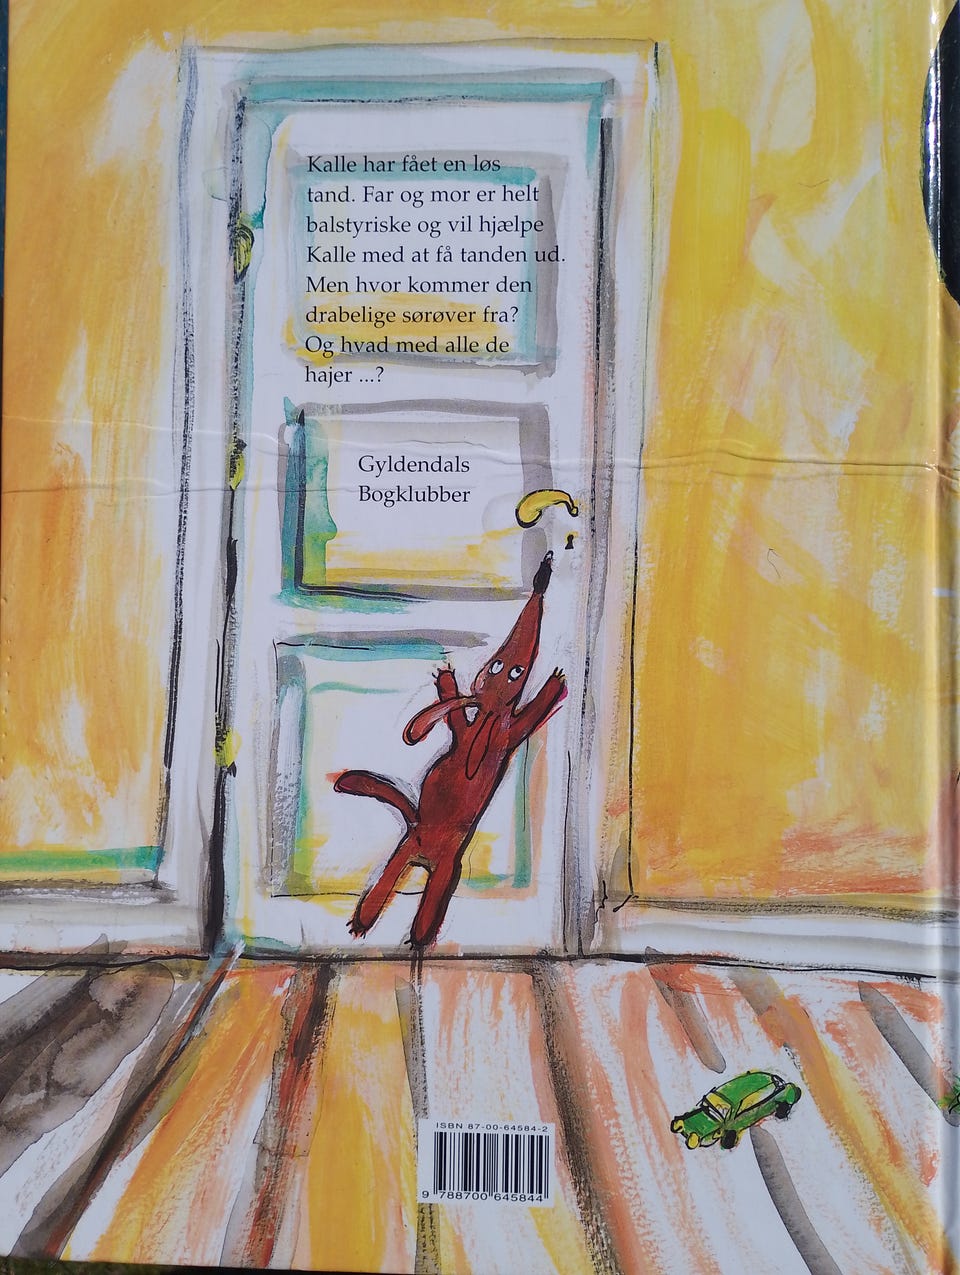 Kalle har fået en løs
tand. Far og mor er helt
balstyriske og vil hjælpe
Kalle med at få tanden ud.
Men hvor kommer den
drabelige sørøver fra?
Og hvad med alle de
hajer ...?
Gyldendals
Bogklubber
ISBN 87-00-64584-2
9 788700 645844